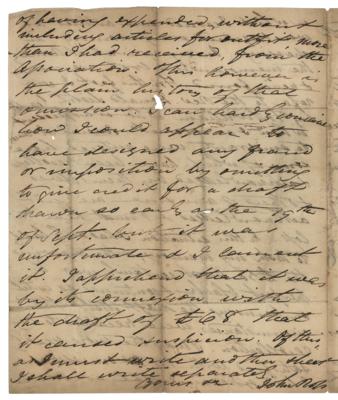 of having expended, without
including articles for outfit more
than I had received, from the
Association. This however is
the plain history of that
omission. I can hardly conceive
how I could appear to
have designed any fraud
or imposition by omitting
to give credit for a draft
drawn so early as the 19th
of Sept. but it was
unfortunate & I lament
it. I apprehend that it was
by its connexion with
the draft of £68 that
it caused suspicion. Of this
as I must write another sheet
I shall write separately
Yours &c John Ross